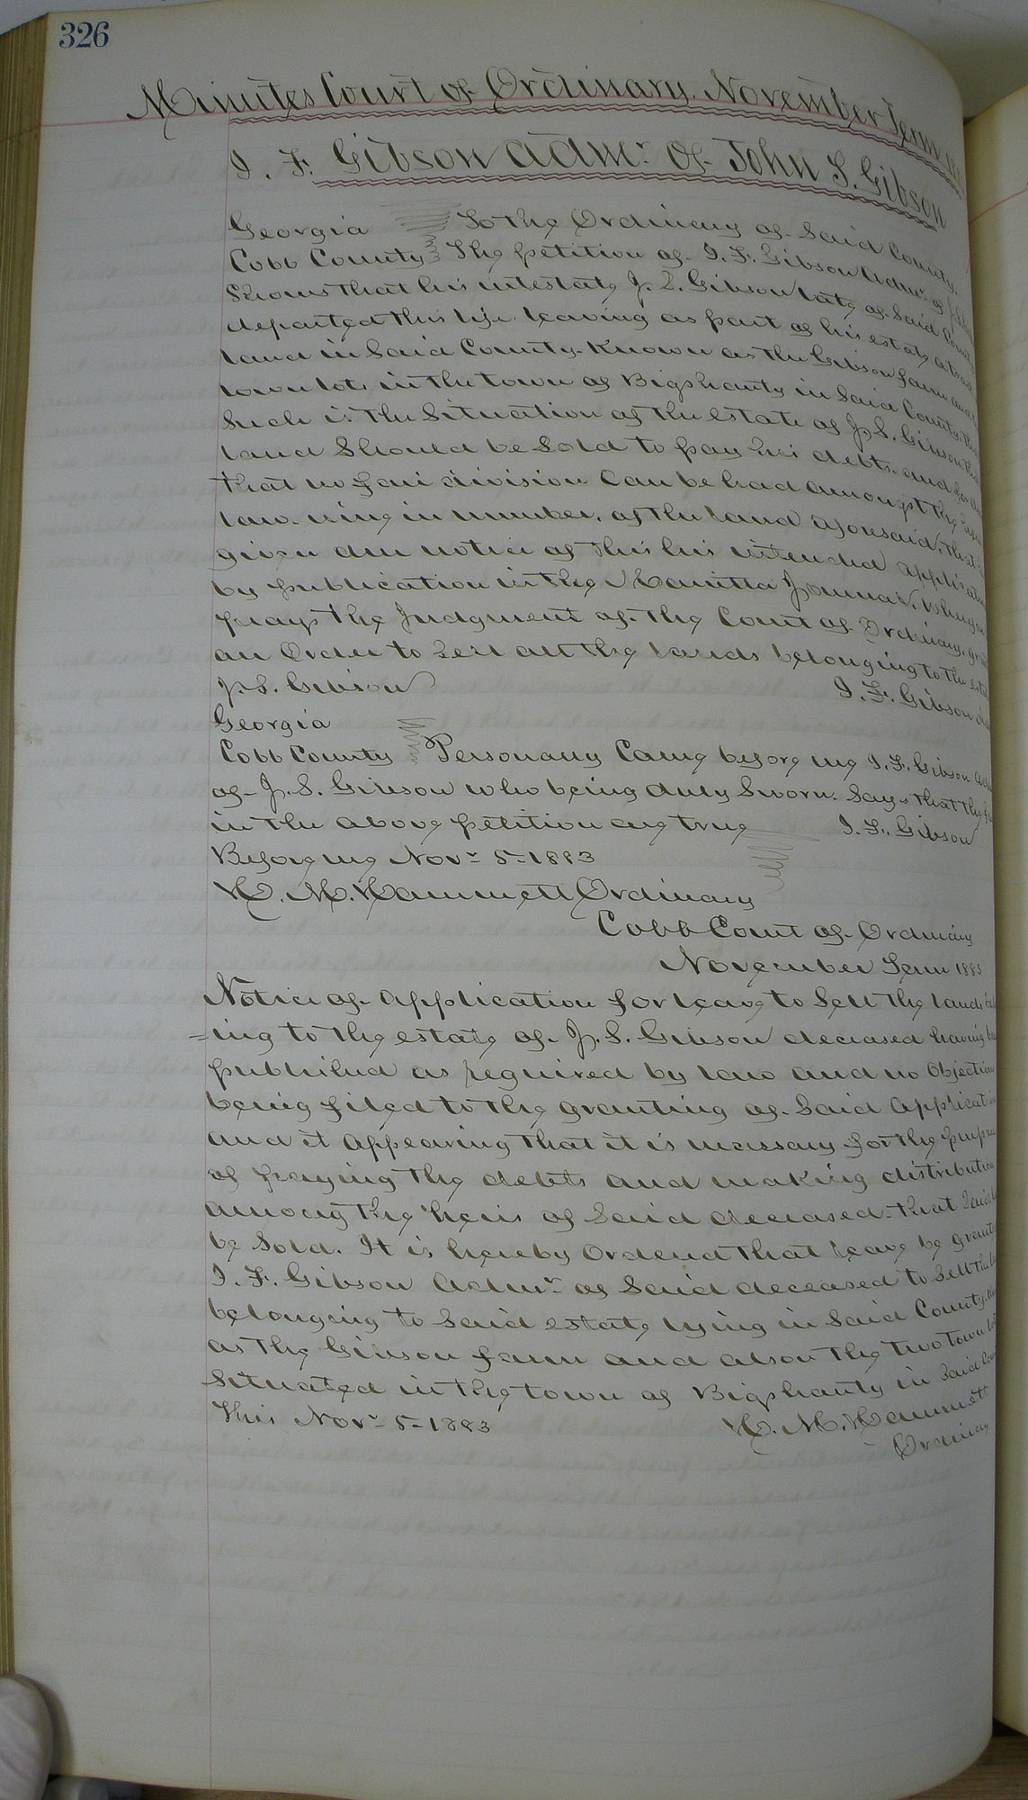 326
Minutes Court of Ordinary November Term
I. F. Gibson Adm.r Of John S. Gibson
Georgia To the Ordinary of Said County.
Cobb County The petition of I. F. Gibson Adm.r of
Shows that his intestate J. S. Gibson late of Said County
departed this life leaving as part of his estate a
land in Said County Known as the Gibson farm and
town lots in the town of Bigshanty in Said County
Such is the Situation of the Estate of J. S. Gibson
land Should be Sold to pay his debts and
that no fair division Can be had amongst the
law. nine in number, of the land aforesaid, that
given due notice of this his intended application
by publication in the Marietta Journal. Wherefore
prays the Judgment of the Court of Ordinary
an Order to Sell all the lands belonging to the
J. S. Gibson I. F. Gibson
Georgia
Cobb County Personally Came before me I. F. Gibson
of J. S. Gibson who being duly Sworn. Says that the
in the above petition are true I. F. Gibson
Before me Nov.r 5-1883
H. M. Hammett Ordinary
Cobb Court of Ordinary
November Term 1883
Notice of Application for leave to Sell the lands
=ing to the estate of J. S. Gibson deceased having
published as required by law and no Objection
being filed to the granting of Said Application
and it Appearing that it is necessary for the purpose
of paying the debts and making distribution
among the heirs of Said deceased. that Said
be Sold. It is hereby Ordered that leave be
I. F. Gibson Adm.r of Said deceased to Sell the
belonging to Said estate lying in Said County
as the Gibson farm and also the two town
Situated in the town of Bigshanty in Said
This Nov.r 5-1883 H. M. Hammett
Ordinary